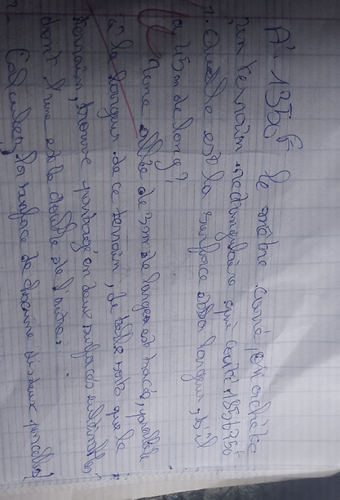 A 1350F le mètre carré, on achète
un terrain rectangulaire qui coûte
1. Quelle est la surface et sa largeur, s'il
a 45m de long?
Une allée de 3m de largeur est tracée, parallèle
à la longueur de ce terrain, de telle sorte que le
terrain, partagé en deux surfaces cultivables
dont l'une est le double de l'autre.
Calculez la surface de chacune de ces parcelles